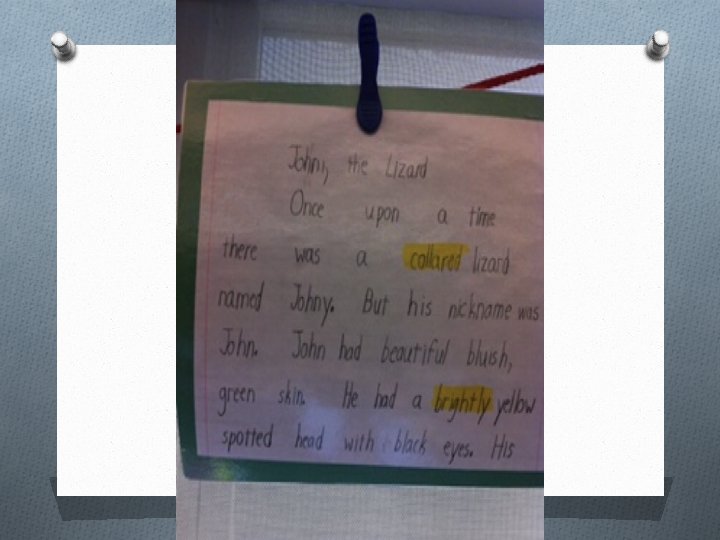 Johny the Lizard
Once upon a time
there was a collared lizard
named Johny. But his nickname was
John. John had beautiful bluish,
green skin. He had a brightly yellow
spotted head with black eyes. His